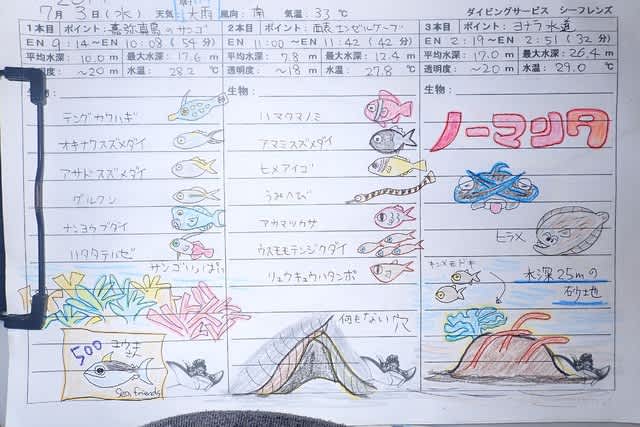 7月 3日(水) 天気 大雨 風向: 南 気温: 33℃ ダイビングサービス シーフレンズ
1本目 ポイント: 嘉弥真島 サンゴ
EN 9:14 ~ EX 10:08 (54分)
平均水深: 10.0 m 最大水深: 17.6 m
透明度: ~20 m 水温: 28.2 ℃
生物:
テングカワハギ
オキナワスズメダイ
アサドスズメダイ
グルクン
ナンヨウブダイ
ハタタテハゼ
サンゴいっぱい
500
ヨウキさん
Sea friends
2本目 ポイント: エンゼルケーブ
EN 11:00 ~ EX 11:42 (42分)
平均水深: 7.8 m 最大水深: 12.4 m
透明度: ~18 m 水温: 27.8 ℃
生物:
ハマクマノミ
アマミスズメダイ
ヒメアイゴ
うみへび
アカマツカサ
ウスモモテンジクダイ
リュウキュウハタンポ
何もない穴
3本目 ポイント: ヨナラ水道
EN 2:19 ~ EX 2:51 (32分)
平均水深: 17.0 m 最大水深: 26.4 m
透明度: ~20 m 水温: 29.0 ℃
生物:
ノーマンタ
ヒラメ
キンメモドキ
水深25mの
砂地